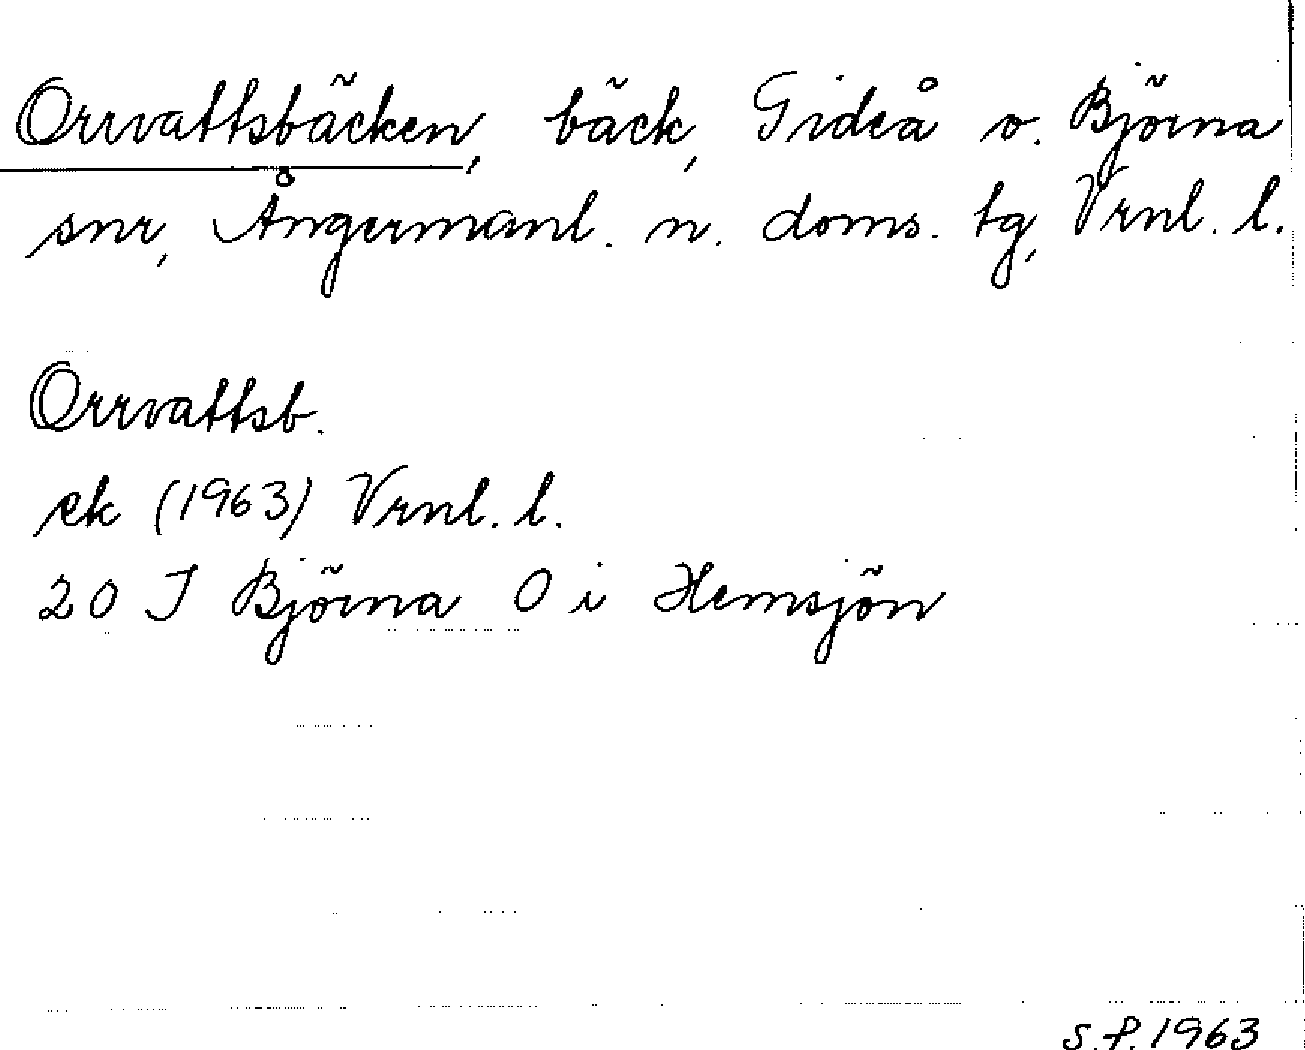 Orrvattsbäcken, bäck, Gideå o. Björna
snr, Ångermanl. n. doms. tg, Vrnl. l.
Orrvattsb.
ek (1963) Vrnl. l.
20 I Björna O i Hemsjön
s.f. 1963